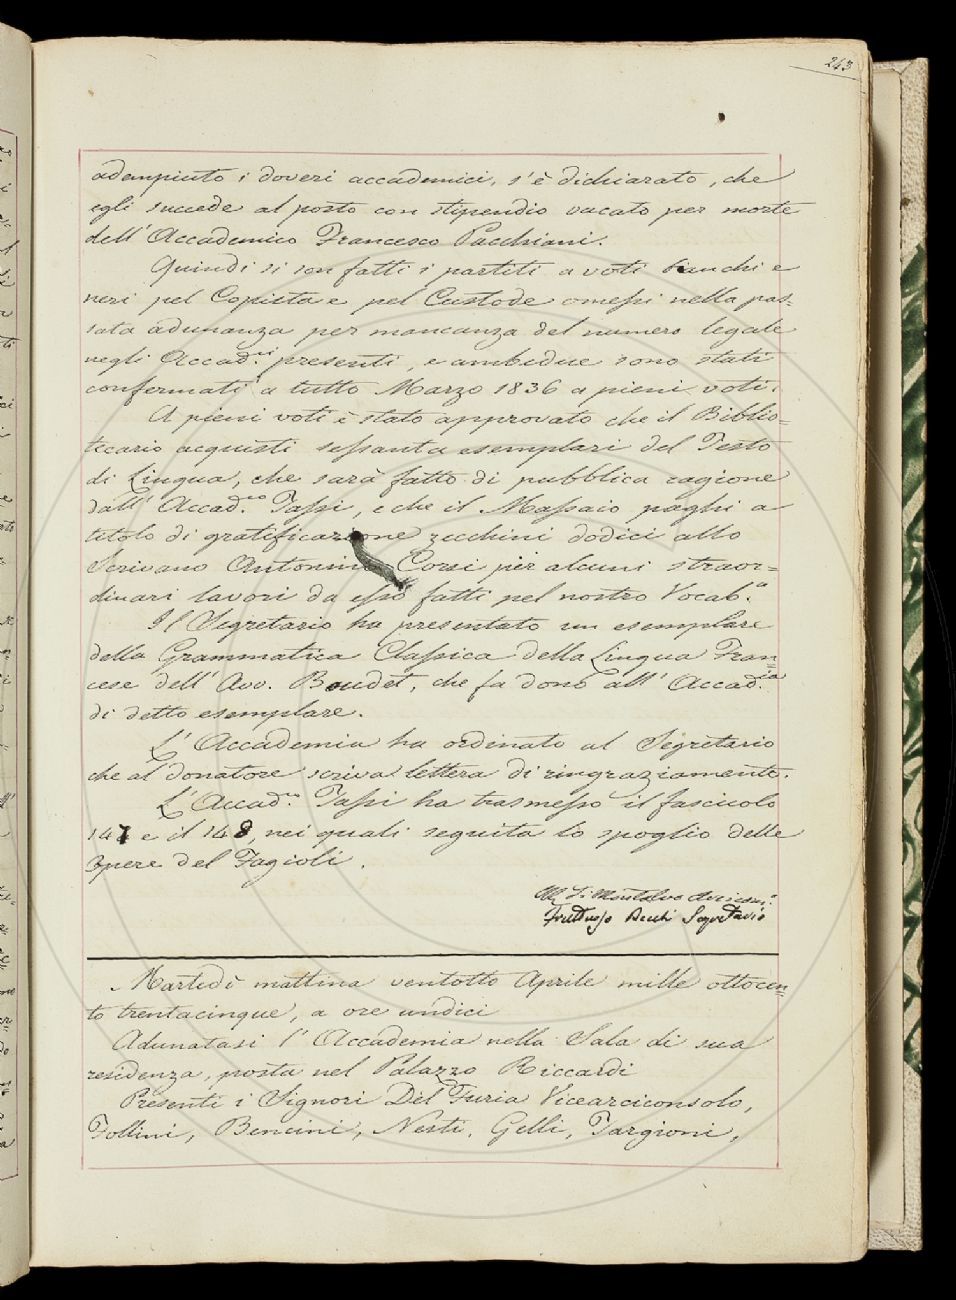 243
adempiuto i doveri accademici, s'è dichiarato, che
egli succede al posto con stipendio vacato per morte
dell'Accademico Francesco Pacchiani.
Quindi si son fatti i partiti a voti bianchi e
neri pel Copista e pel Custode omessi nella pas=
sata adunanza per mancanza del numero legale
negli Accad.ci presenti, e ambidue sono stati
confermati a tutto Marzo 1836 a pieni voti.
A pieni voti è stato approvato che il Biblio=
tecario acquisti sessanta esemplari del Testo
di Lingua, che sarà fatto di pubblica ragione
dall'Accad.co Tassi, e che il Massaio paghi a
titolo di gratificazione zecchini dodici allo
Scrivano Antonino Corsi per alcuni straor=
dinari lavori da esso fatti pel nostro Vocab.o
Il Segretario ha presentato un esemplare
della Grammatica Classica della Lingua Fran=
cese dell'Avv. Boudet, che fa dono all'Accad.ia
di detto esemplare.
L'Accademia ha ordinato al Segretario
che al donatore scriva lettera di ringraziamento.
L'Accad.co Tassi ha trasmesso il fascicolo
147 e il 148, nei quali seguita lo spoglio delle
Opere del Fagioli.
Montalvo
Fruttuoso Becchi Segretario
Martedì mattina ventotto Aprile mille ottocen=
to trentacinque, a ore undici
Adunatasi l'Accademia nella Sala di sua
residenza, posta nel Palazzo Riccardi
Presenti i Signori Del Furia Vicearciconsolo,
Follini, Bencini, Nesti, Gelli, Targioni,